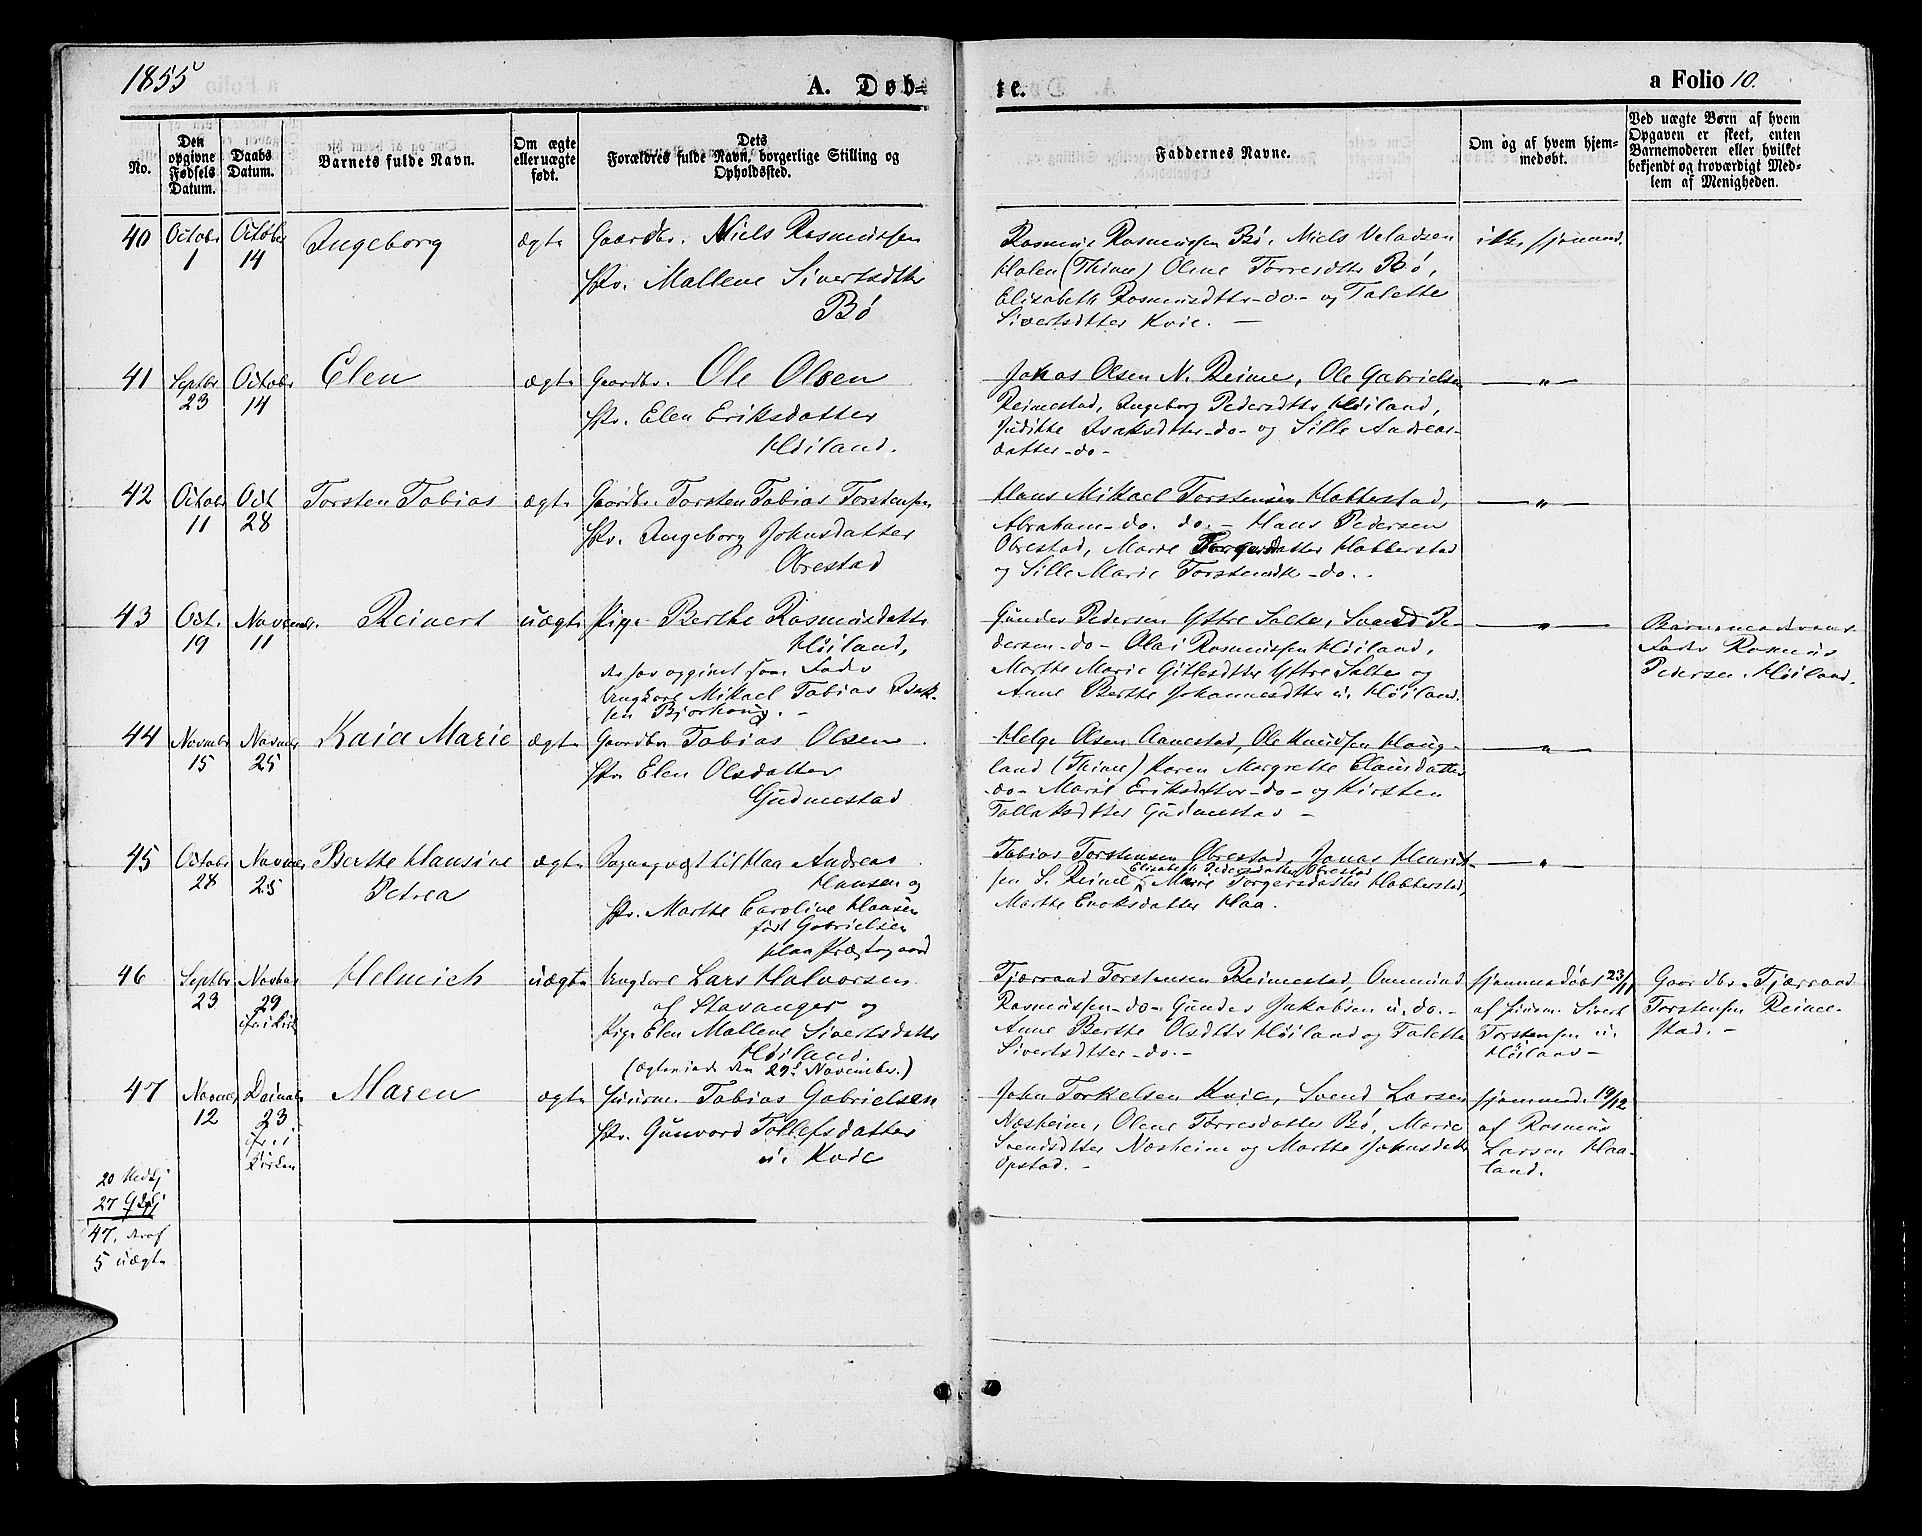 1855
A. Døb=
te.
a Folio 10.
No.
Den opgivne Fødsels Datum.
Daabs Datum.
Barnets fulde Navn.
Om ægte eller uægte født.
Dets Forældres fulde Navn, borgerlige Stilling og Opholdssted.
Faddernes Navne.
Om og af hvem hjemmedøbt.
Ved uægte Børn af hvem Opgaven er skeet, enten Barnemoderen eller hvilket bekjendt og troværdigt Medlem af Menigheden.
40 Octobr 1 October 14 Ingeborg ægte Gaardbr. Niels Rasmussen
Hstr. Mallene Sivertsdtter
Bø
Rasmus Rasmussen Bø, Niels
(Thime) Olene Torresdtter Bø,
Elisabeth Rasmusdtter -do.- og Talette
Sivertsdtter Kvie. —
41 Septbr 23 Octobr 14 Elen ægte Gaardbr. Ole Olsen
Hstr. Elen Eriksdatter
Høiland.
Jonas Olsen N. Reime, Ole Gabrielsen — „ —
Reimestad, Ingeborg Pedersdtter Høiland,
Juditte Isaksdtter -do- og Sille Andreas-
datter -do-
42 Octobr 11 Oct 28 Torsten Tobias ægte Gaardbr. Torsten Tobias Torstensen
Hstr. Ingeborg Johnsdatter
Obrestad
Hans Mikael Torstensen Habberstad, — „ —
Abraham -do. do.- Hans Pedersen
Obrestad, Marie Torgersdatter Habberstad
og Sille Marie Torstensdtr -do.-
43 Oct. 19 Novembr. 11 Reinert uægte Pige Berthe Rasmusdatter
Høiland,
der har opgivet som Fader
Ungkarl Mikael Tobias Isak-
sen Bjorhoug. -
Gunder Pedersen Yttre Salte, Svend Pe- — „ —
dersen -do- Olai Rasmussen Høiland,
Marthe Marie Yttre Salte og
Anne Berthe Johannesdtter u. Høiland.
Barnemoderens
Fader Rasmus
Pedersen Høiland.
44 Novmbr 15 Novmbr 25 Kaia Marie ægte Gaardbr Tobias Olsen
Hstr Elen Olsdatter
Gudmestad
Helge Olsen Aanestad, Ole Knudsen Haug- — „ —
land (Thime) Karen Margrethe Clausdatter
-do- Marie Eriksdtter -do- og Kirsten
Tollaksdtter Gudmestad -
45 Octobr 28 Novmbr 25 Berthe Hansine
Petrea
ægte Andreas
Hansen og
Hstr. Marthe Caroline Hansen
født Gabrielsen
Haa Præstegaard
Tobias Torstensen Obrestad, Jonas Henrik- — „ —
sen S. Reime, Elisabeth Pedersdatter Obrestad
Marie Torgersdatter Habberstad,
Marthe Enoksdatter Haa.
46 Septbr 23 Novbr 29 fr. i Kirk Helmich uægte Ungkarl Lars Halvorsen
af Stavanger og
Pige Elen Mallene Sivertsdatter
Høiland.
(Ægteviede den 29de November.)
Tjærand Torstensen Reimestad, Ommund
Rasmussen -do- Gunder Jakobsen u. do.-
Anne Berthe Olsdtter Høiland og Talette
Sivertsdtter -do.-
hjemmedøbt 23/11
af Sivert
Torstensen u.
Høiland -
Gaardbr. Tjærand
Torstensen Reime-
stad. -
47 Novmbr 12 23 fr. i Kirken Maren ægte Huusm. Tobias Gabrielsen
Hstr. Gunvord Tollefsdatter
u. Kvie
John Torkelsen Kvie, Svend Larsen
Næsheim, Olene Torresdatter Bø, Marie
Svendsdtter Næsheim og Marthe Johnsdatter
Opstad. -
hjemmed. 19/12
af Rasmus
Larsen Haa-
land.
20
27
47. deraf
5 uægte